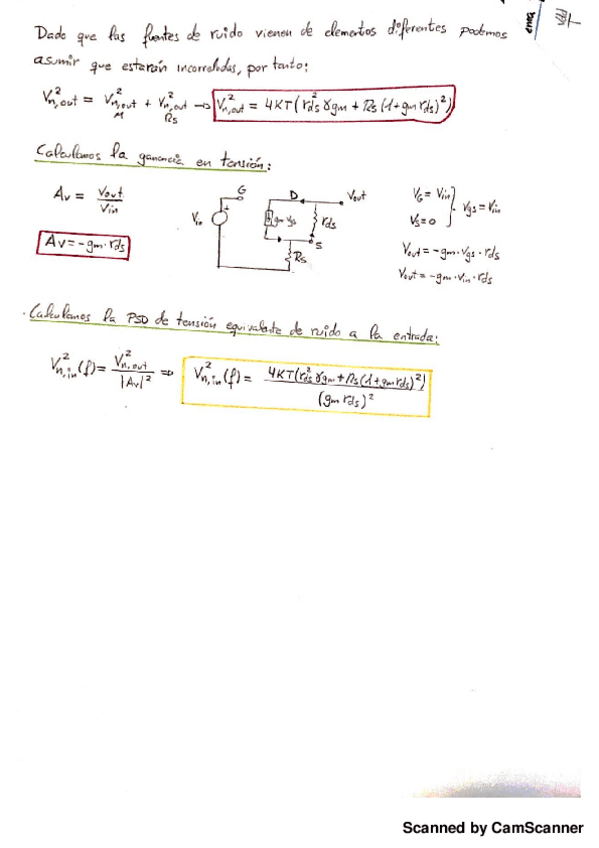 Dado que las fuentes de ruido vienen de elementos diferentes podemos
asumir que estarán incorreladas, por tanto:
V²n,out = V²n,out M + V²n,out Rs → V²n,out = 4KT(rds² γgm + Rs(1+gm rds)²)
Calculamos la ganancia en tensión:
Av = Vout / Vin
Av = -gm · rds
G
Vin
+
D
gm vgs
rds
Vout
S
Rs
VG = Vin
VS = 0
Vgs = Vin
Vout = -gm · Vgs · rds
Vout = -gm · Vin · rds
· Calculamos la PSD de tensión equivalente de ruido a la entrada:
V²n,in (f) = V²n,out / |Av|² ⇒ V²n,in (f) = 4KT(rds² γgm + Rs(1+gm rds)²) / (gm rds)²
Scanned by CamScanner